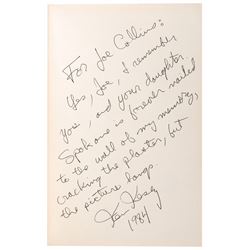 For Joe Collins:
Yes, Joe, I remember
you, and your daughter.
Spokane is forever nailed
to the wall of my memory,
cracking the plaster, but
the picture hangs.
Ken Kesey
1984